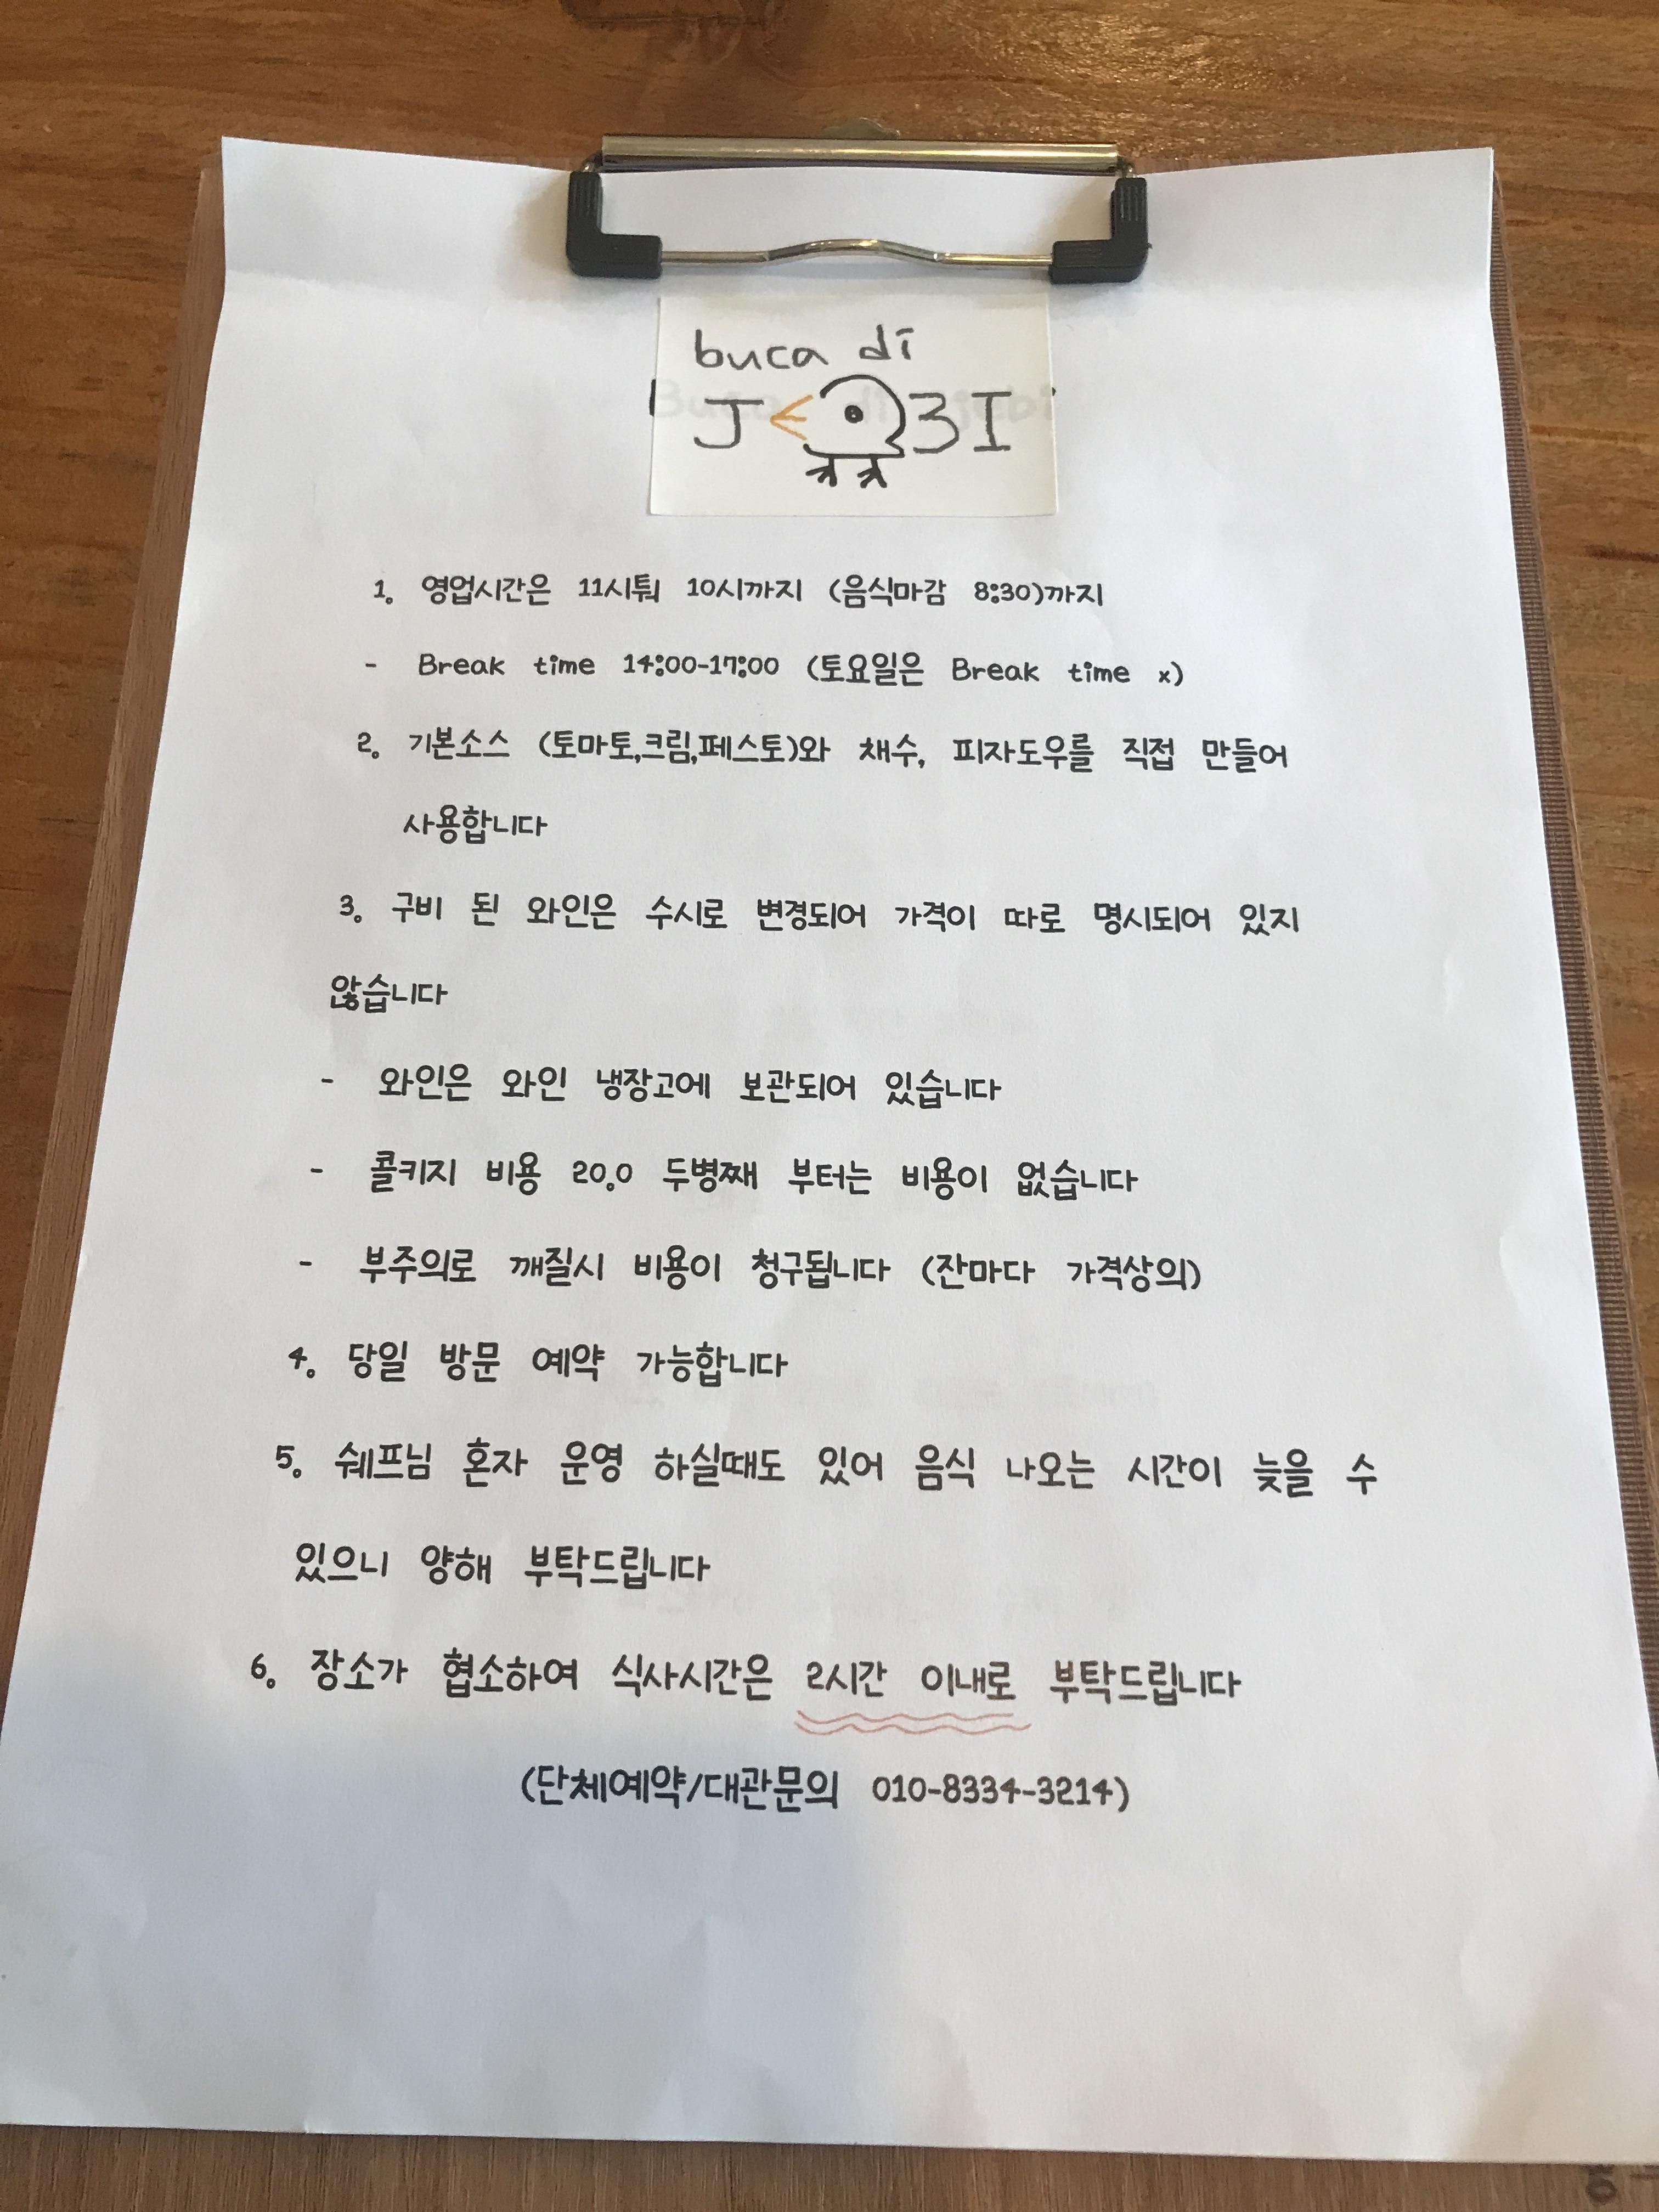 buca di
J 3I
1. 영업시간은 11시퉈 10시까지 (음식마감 8:30)까지
- Break time 14:00-17:00 (토요일은 Break time x)
2. 기본소스 (토마토,크림,페스토)와 채수, 피자도우를 직접 만들어
사용합니다
3. 구비 된 와인은 수시로 변경되어 가격이 따로 명시되어 있지
않습니다
- 와인은 와인 냉장고에 보관되어 있습니다
- 콜키지 비용 20.0 두병째 부터는 비용이 없습니다
- 부주의로 깨질시 비용이 청구됩니다 (잔마다 가격상의)
4. 당일 방문 예약 가능합니다
5. 쉐프님 혼자 운영 하실때도 있어 음식 나오는 시간이 늦을 수
있으니 양해 부탁드립니다
6. 장소가 협소하여 식사시간은 2시간 이내로 부탁드립니다
(단체예약/대관문의 010-8334-3214)